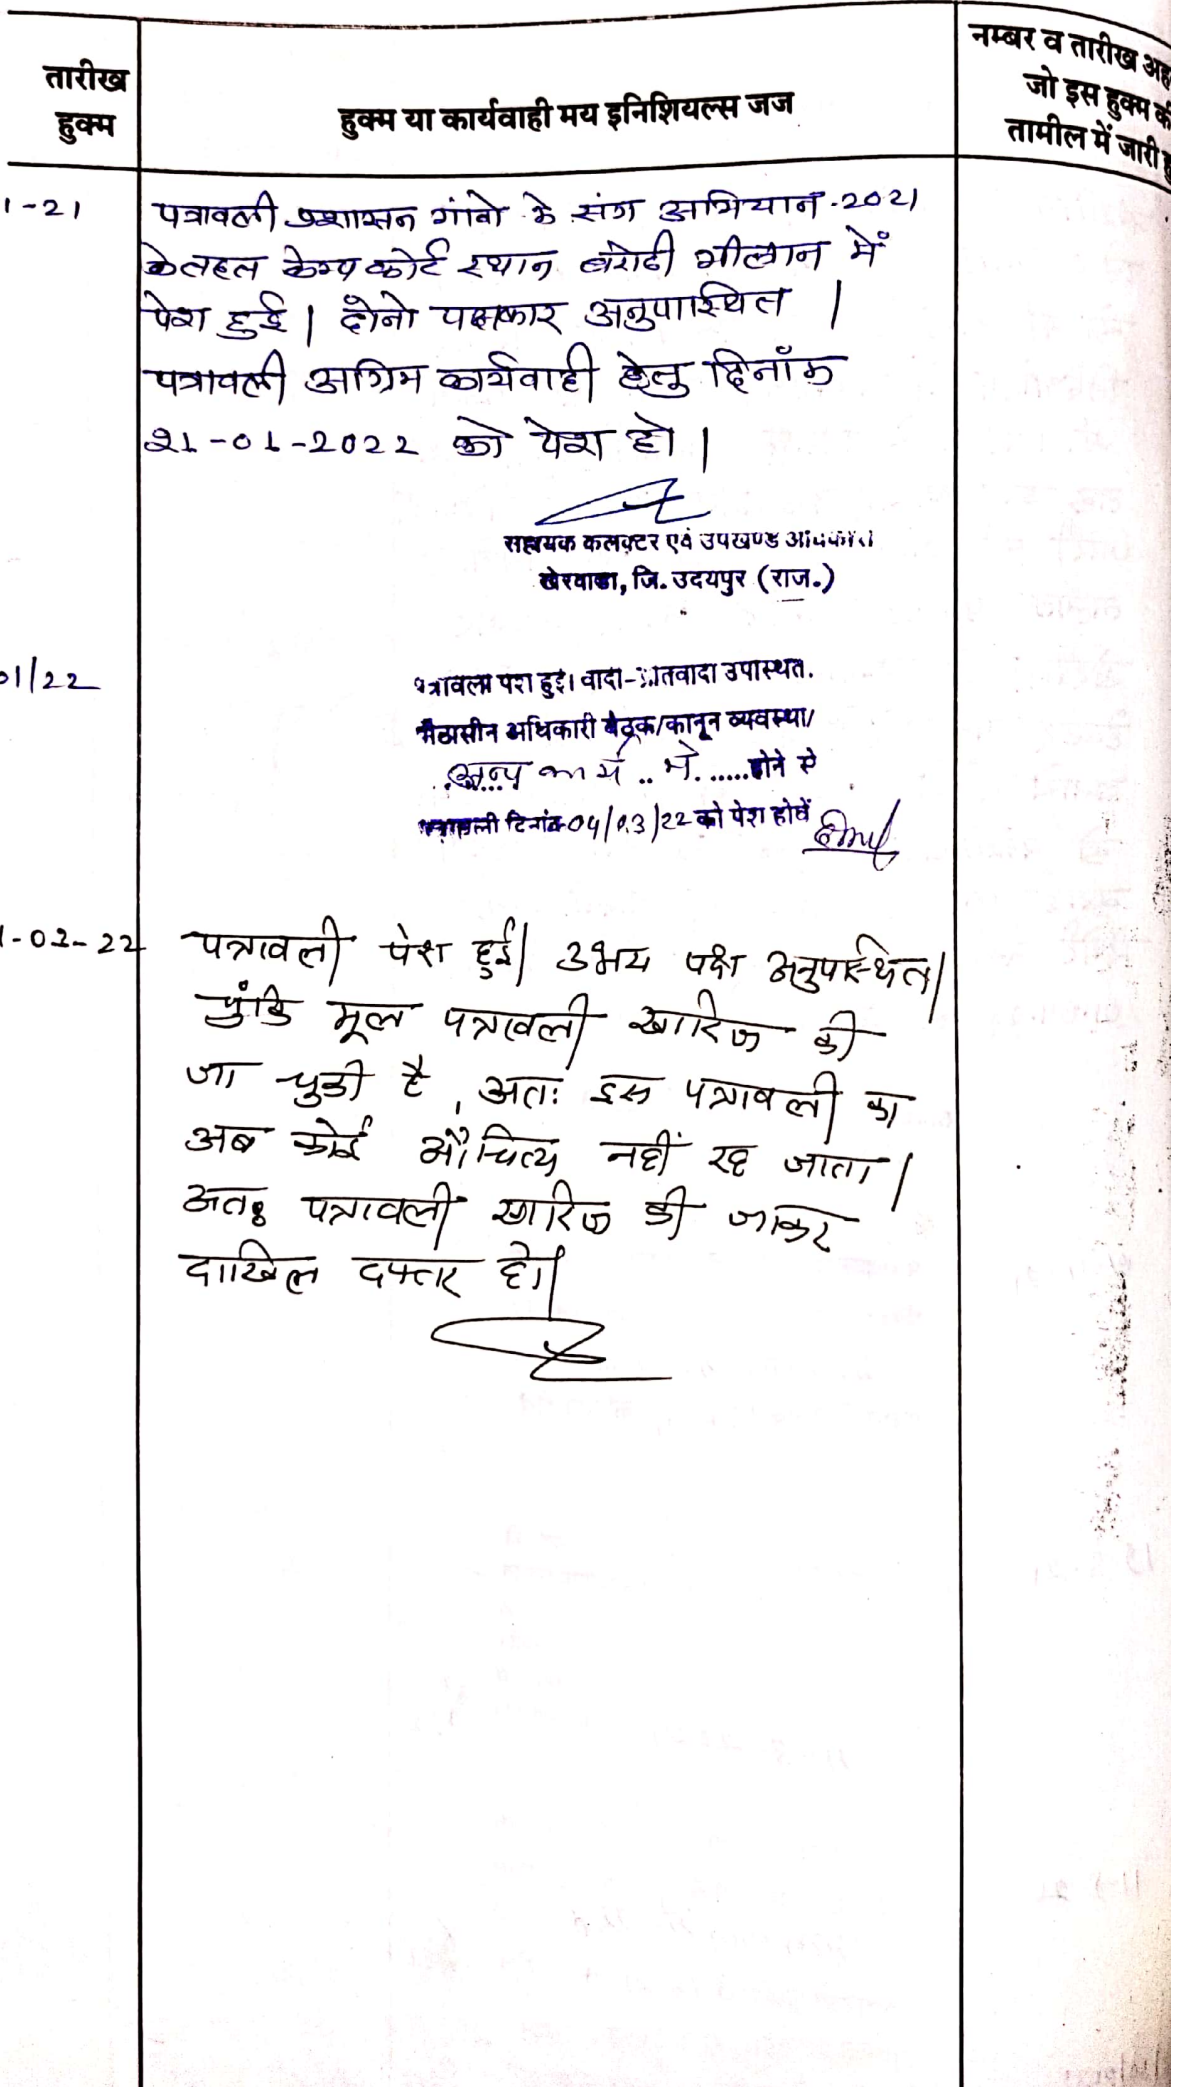 तारीख
हुक्म
हुक्म या कार्यवाही मय इनिशियल्स जज
नम्बर व तारीख
जो इस हुक्म की
तामील में जारी
1-21
पत्रावली प्रशासन गांवो के संग अभियान-2021
के तहत केम्प कोर्ट स्थान बरोठी भीलान में
पेश हुई। दोनो पक्षकार अनुपास्थित।
पत्रावली अग्रिम कार्यवाही हेतु दिनाँक
21-01-2022 को पेश हो।
सहायक कलक्टर एवं उपखण्ड अधिकारी
खेरवाडा, जि. उदयपुर (राज.)
01/22
पत्रावली पेश हुई। वादी-प्रतिवादी उपास्थत.
अधिकारी बैठक/कानून व्यवस्था/
अन्य कार्य .. में. ..... होने से
पत्रावली दिनांक 04/03/22 को पेश होवें
1-02-22
पत्रावली पेश हुई। उभय पक्ष अनुपस्थित।
चुंकि मूल पत्रावली खारिज की
जा चुकी है, अतः इस पत्रावली का
अब कोई औचित्य नहीं रह जाता।
अतः पत्रावली खारिज की जाकर
दाखिल दफ्तर हो।